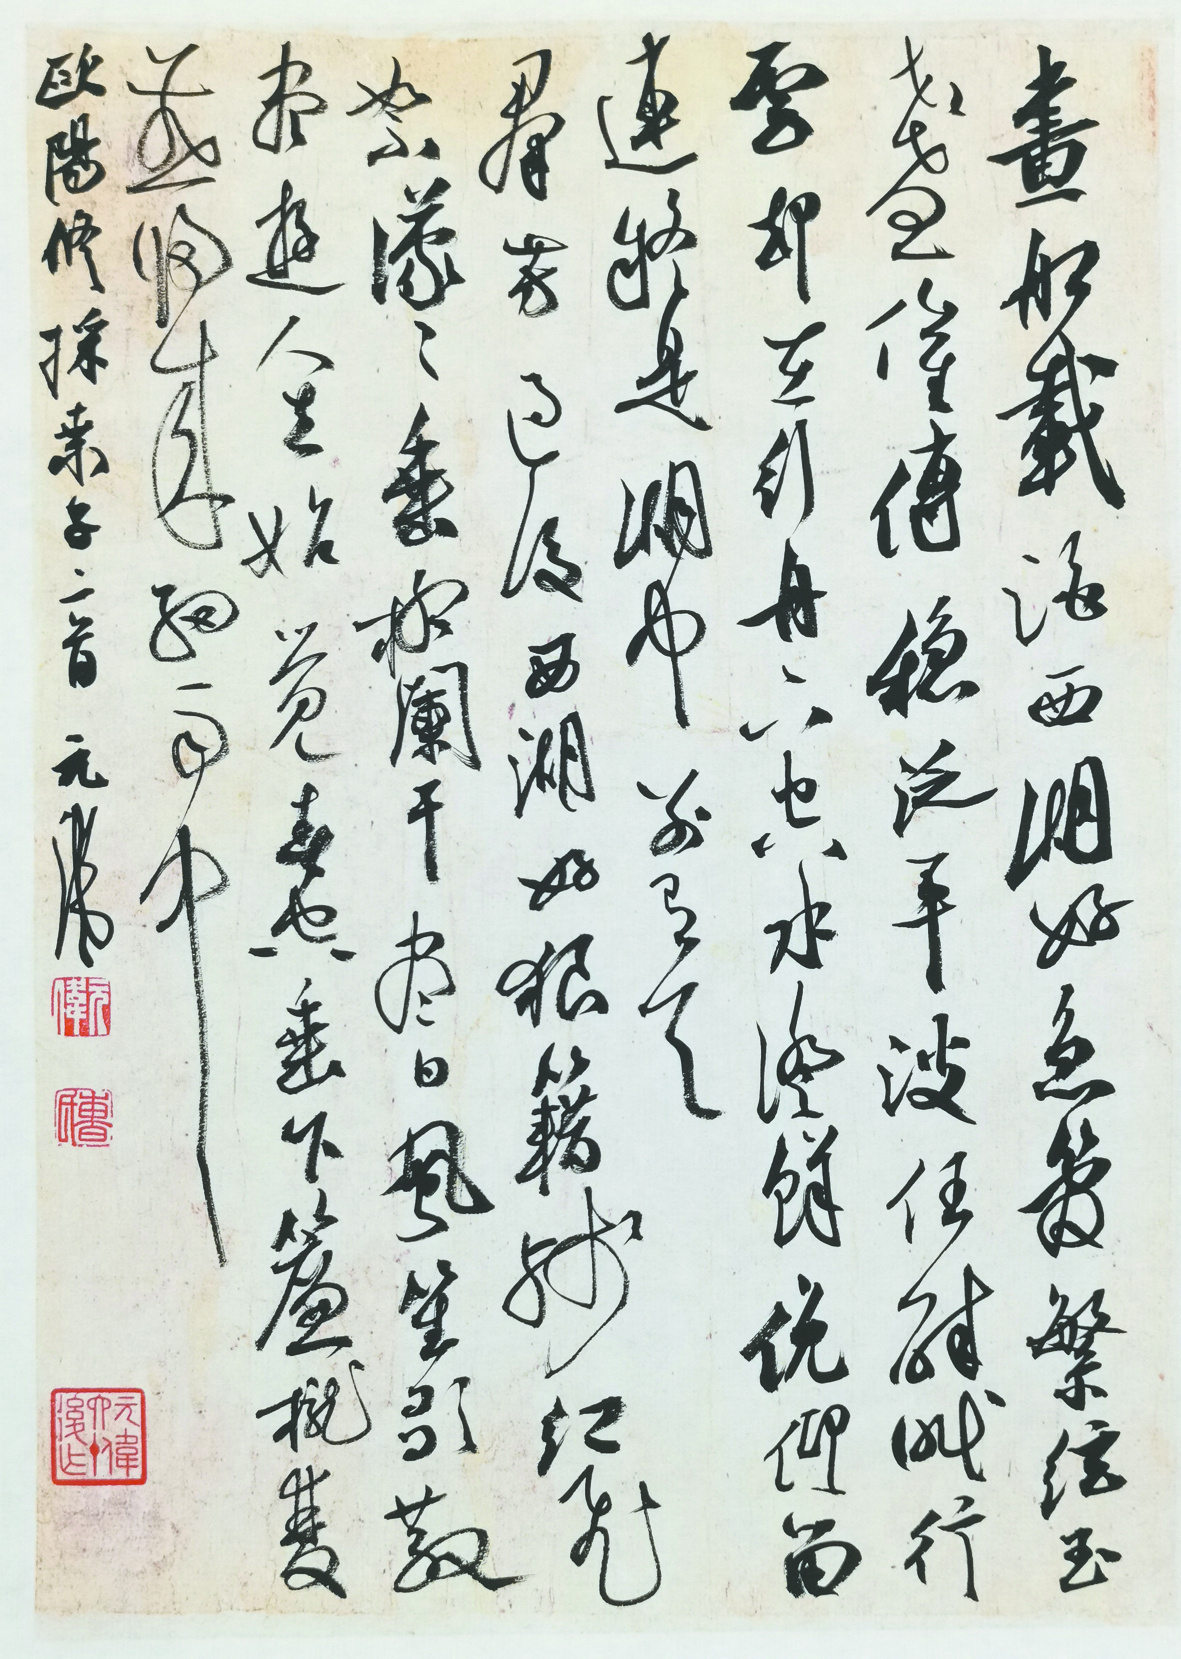 畫船載酒西湖好急管繁絃玉
盞催傳穩泛平波任醉眠行
雲却在行舟下空水澄鮮俛仰留
連疑是湖中別有天
羣芳過後西湖好狼籍殘紅飛
絮濛〻垂柳闌干尽日風笙歌散
尽遊人去始覺春空垂下簾櫳雙
燕歸來細雨中
歐陽修採桑子二首 元偉